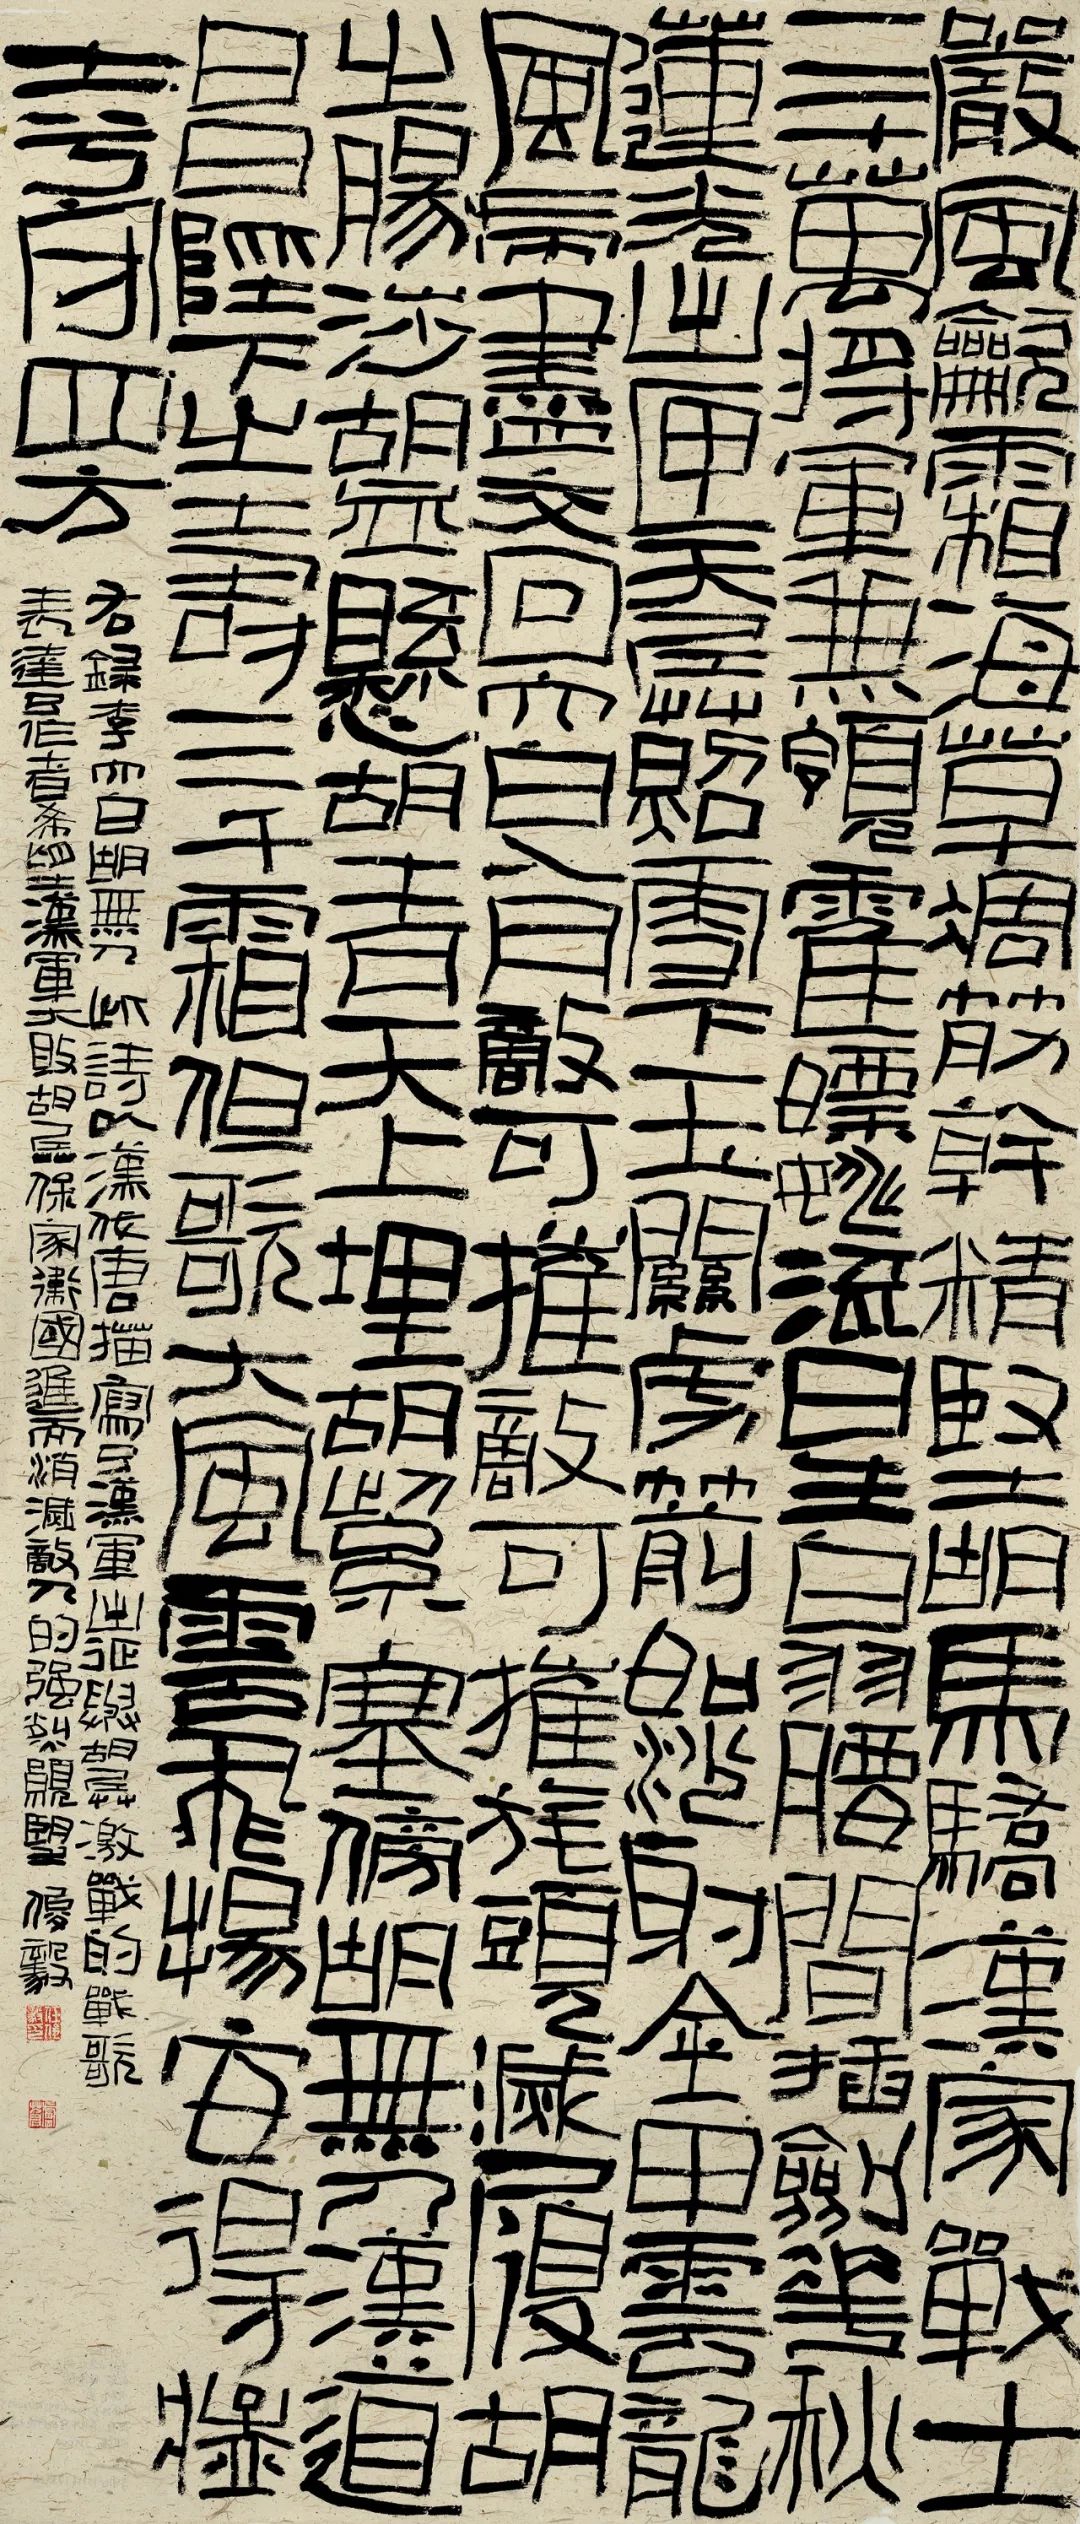 嚴風龡霜海草凋筋幹精堅胡馬驕漢家戰士
三十萬將軍兼領霍嫖姚流星白羽腰間插劍華秋
蓮光出匣天兵照雪下玉關虜箭如沙射金甲雲龍
風虎盡交回太白入月敵可摧敵可摧旄頭滅履胡
之腸涉胡血懸胡青天上埋胡紫塞傍胡無人漢道
昌陛下之壽三千霜但歌大風雲飛揚安得猛
士兮守四方
右錄李太白胡無人此詩以漢代唐描寫了漢軍出征與胡兵激戰的戰歌
表達了作者希望漢軍大敗胡兵保家衛國進而消滅敵人的強烈願望 俊毅